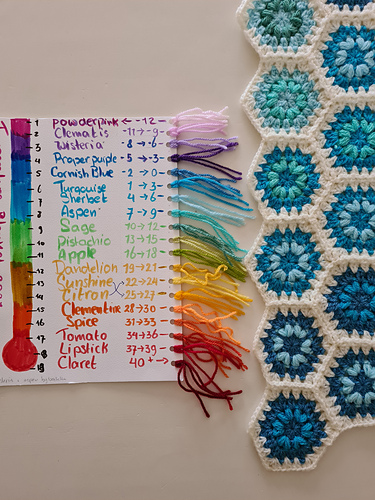 1 Powderpink ← -12
2 Clematis -11 → -9
3 Wisteria -8 → -6
4 Proper purple -5 → -3
5 Cornish Blue -2 → 0
6 Turquoise 1 → 3
7 Sherbet 4 → 6
8 Aspen 7 → 9
9 Sage 10 → 12
10 Pistachio 13 → 15
11 Apple 16 → 18
12 Dandelion 19 → 21
13 Sunshine 22 → 24
14 Citron 25 → 27
15 Clementine 28 → 30
16 Spice 31 → 33
17 Tomato 34 → 36
18 Lipstick 37 → 39
19 Claret 40+ →